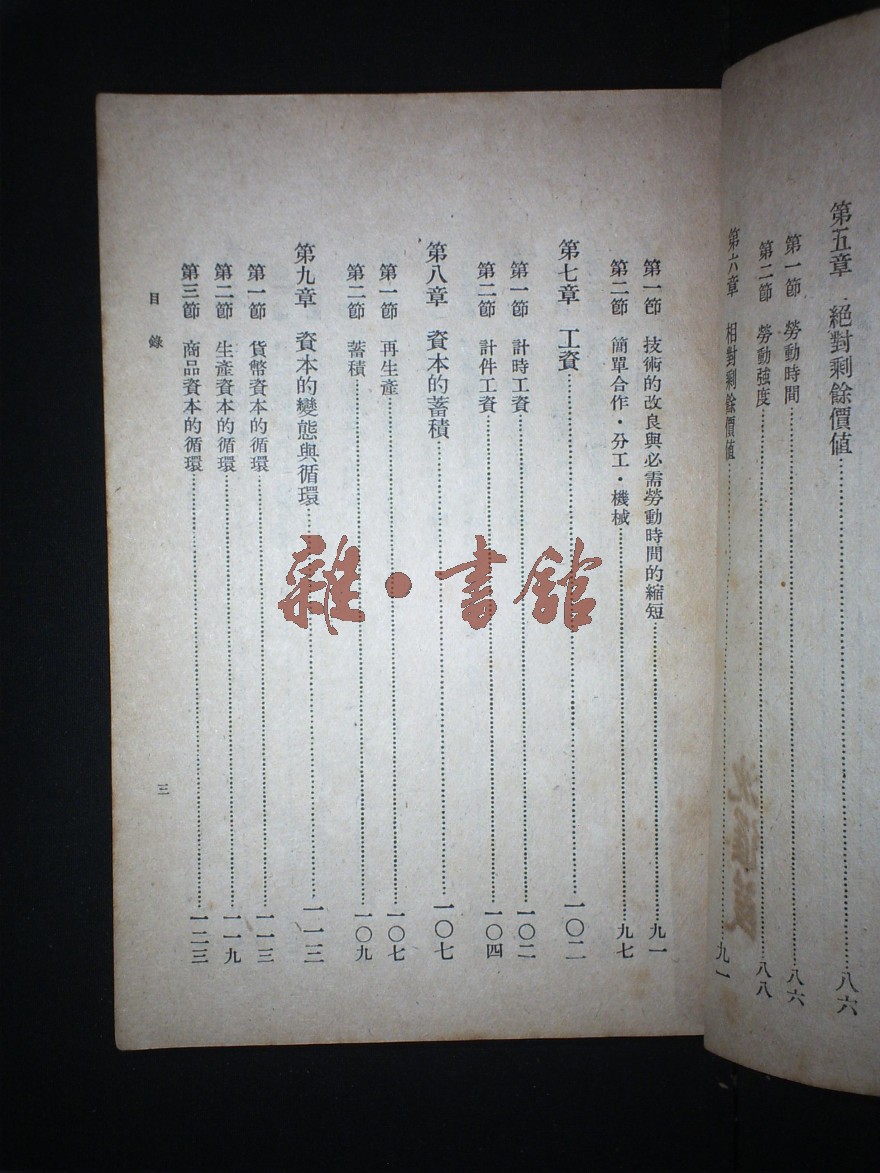 第五章 絕對剩餘價值……八六
第一節 勞動時間……八六
第二節 勞動強度……八八
第六章 相對剩餘價值……九一
第一節 技術的改良與必需勞動時間的縮短……九一
第二節 簡單合作・分工・機械……九七
第七章 工資……一〇二
第一節 計時工資……一〇二
第二節 計件工資……一〇四
第八章 資本的蓄積……一〇七
第一節 再生產……一〇七
第二節 蓄積……一〇九
第九章 資本的變態與循環……一一三
第一節 貨幣資本的循環……一一三
第二節 生產資本的循環……一一九
第三節 商品資本的循環……一二三
目錄 三
雜・書館